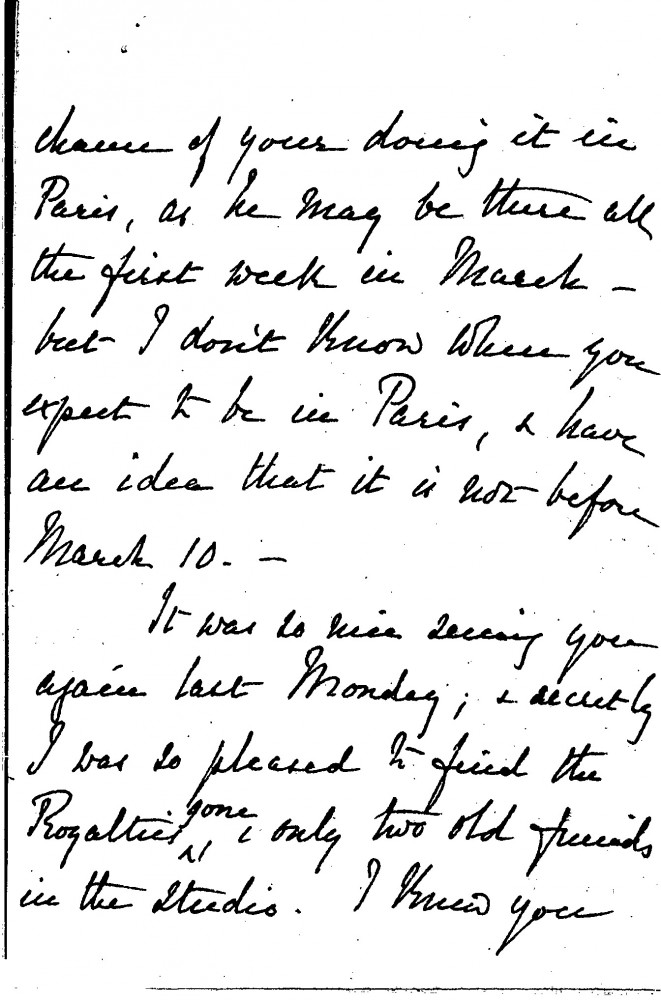 chance of your doing it in
Paris, as he may be there all
the first week in March –
but I don't know when you
expect to be in Paris, & have
an idea that it is not before
March 10. –
It was so nice seeing you
again last Monday; & secretly
I was so pleased to find the
Royalties gone, & only two old friends
in the studio. I know you